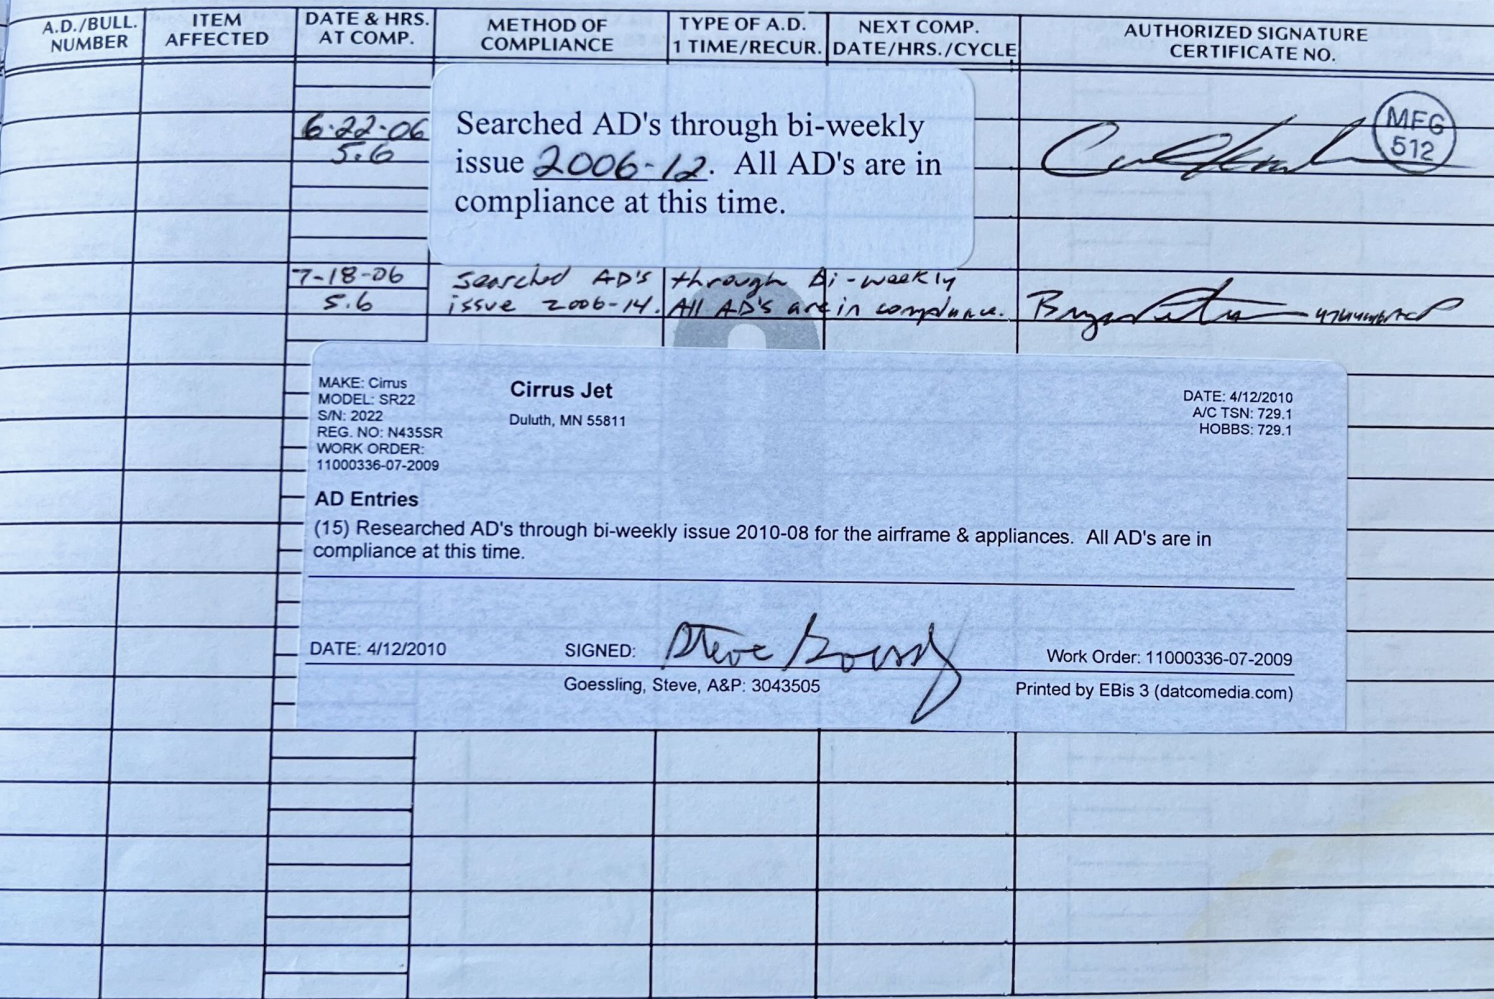 A.D./BULL. NUMBER
ITEM AFFECTED
DATE & HRS. AT COMP.
METHOD OF COMPLIANCE
TYPE OF A.D. 1 TIME/RECUR.
NEXT COMP. DATE/HRS./CYCLE
AUTHORIZED SIGNATURE CERTIFICATE NO.
6-22-06
5.6
Searched AD's through bi-weekly
issue 2006-12. All AD's are in
compliance at this time.
MFG
512
7-18-06 Searched AD's through Bi-weekly
5.6 issue 2006-14. All AD's are in compliance.
MAKE: Cirrus
MODEL: SR22
S/N: 2022
REG. NO: N435SR
WORK ORDER:
11000336-07-2009
Cirrus Jet
Duluth, MN 55811
DATE: 4/12/2010
A/C TSN: 729.1
HOBBS: 729.1
AD Entries
(15) Researched AD's through bi-weekly issue 2010-08 for the airframe & appliances. All AD's are in
compliance at this time.
DATE: 4/12/2010 SIGNED: Steve Work Order: 11000336-07-2009
Goessling, Steve, A&P: 3043505 Printed by EBis 3 (datcomedia.com)